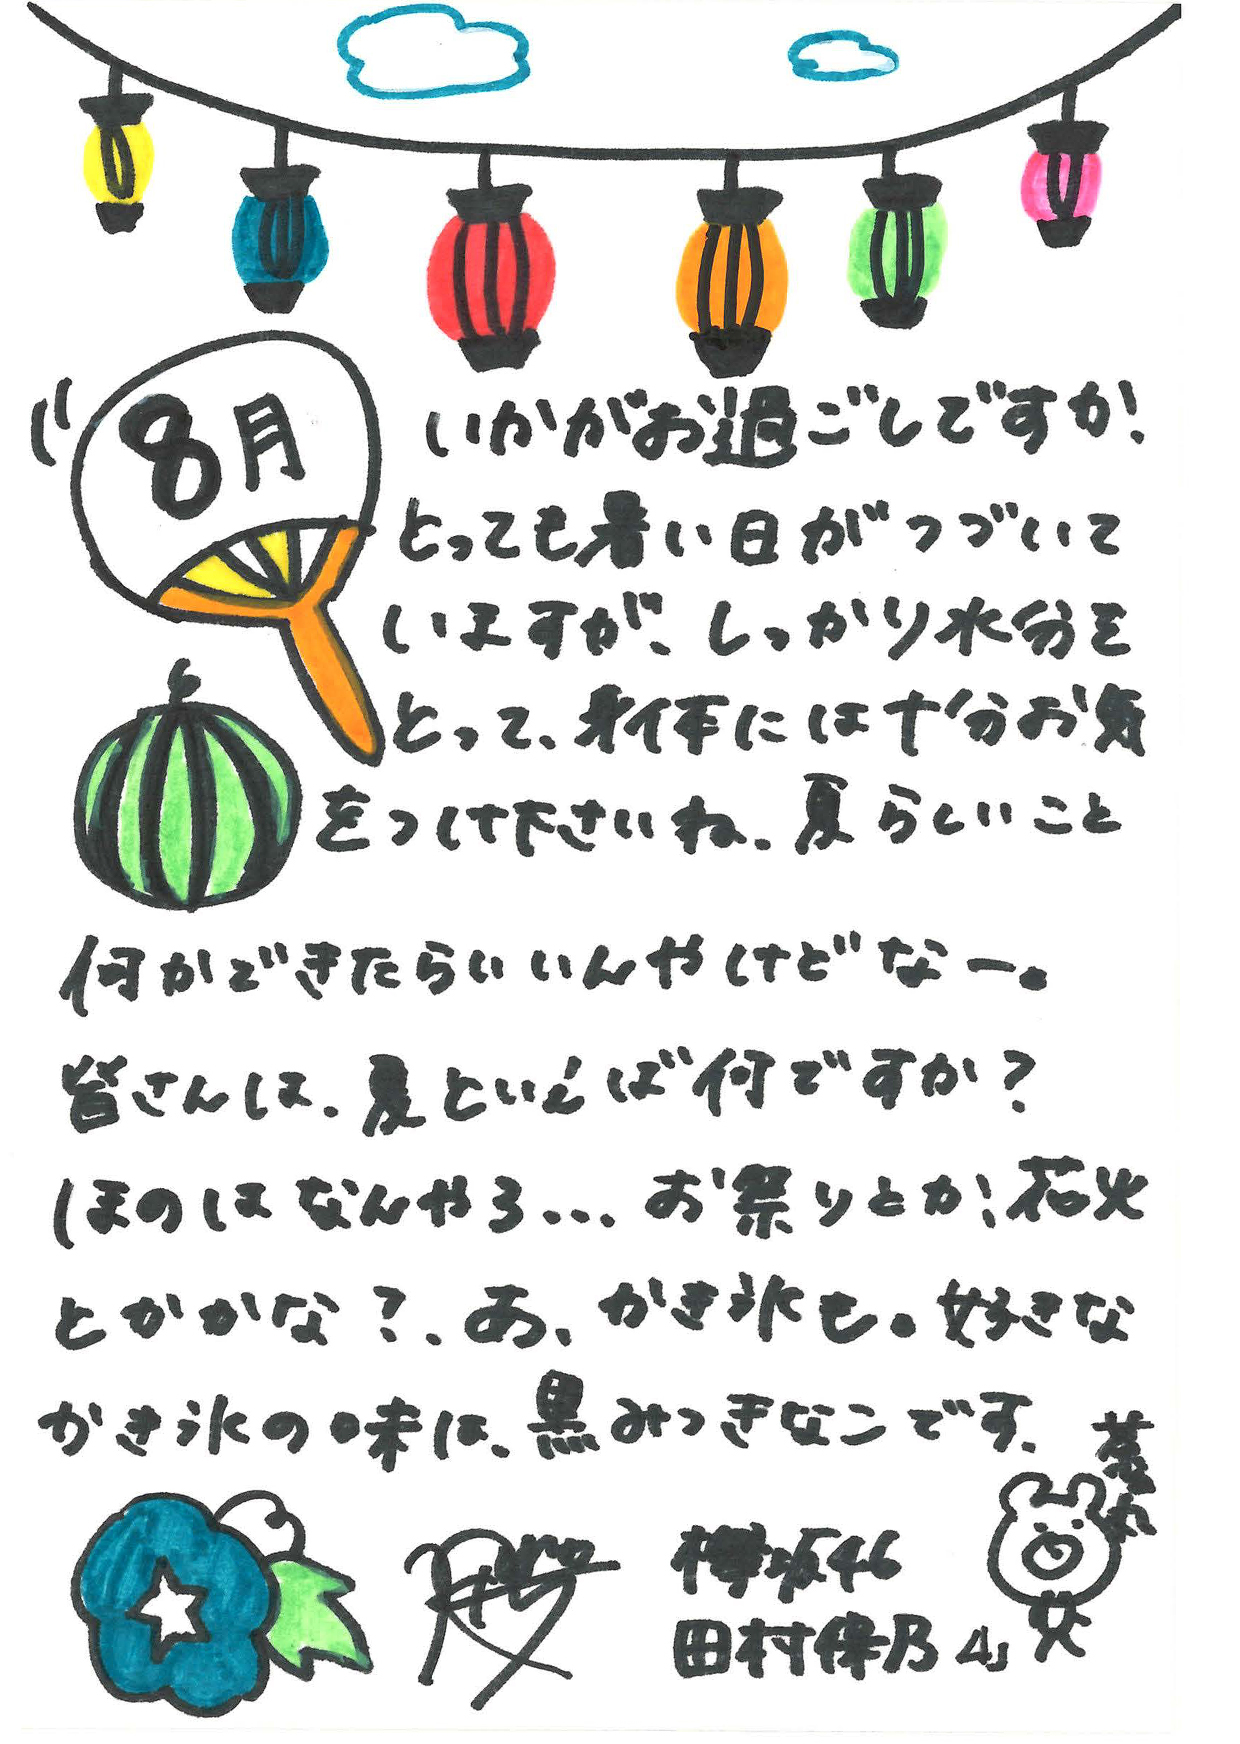 8月
いかがお過ごしですか!
とっても暑い日がつづいて
いますが、しっかり水分を
とって、身体には十分お気
をつけ下さいね。夏らしいこと
何かできたらいいんやけどなー。
皆さんは、夏といえば何ですか?
ほのはなんやろ...お祭りとか!花火
とかかな?、あ、かき氷も。好きな
かき氷の味は、黒みつきなこです。
欅坂46
田村保乃より